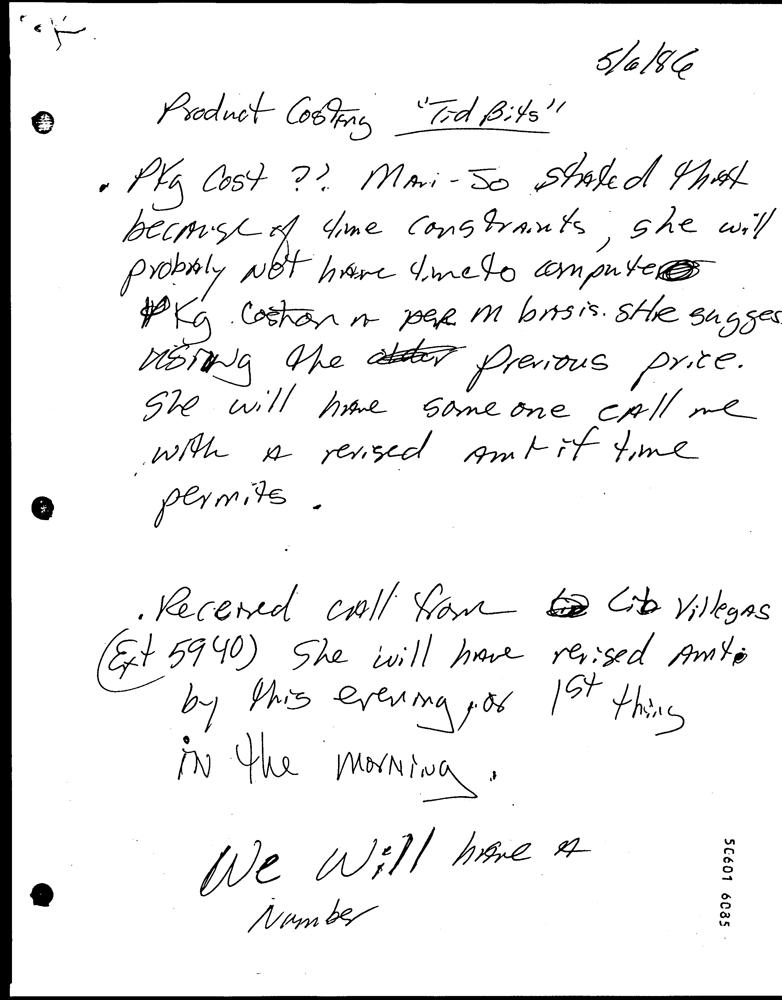 5/6/86
Product Costing "Tid Bits"
. Pkg Cost ?? Mari-Jo stated that
because of time constraints, she will
probaly not have time to compute
Pkg. Cost on a per M basis. She sugges
using the previous price.
She will have someone call me
with a revised Amt if time
permits.
. Received call from Lib Villegas
(Ext 5940) She will have revised Amt.
by this evening, or 1st thing
in the morning.
We will have a
Number
50601 6085